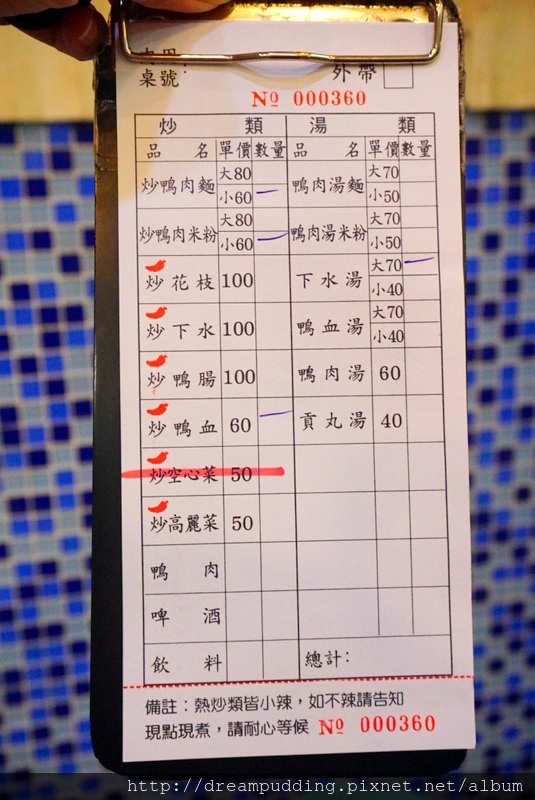 桌號: 外帶
Nº 000360
炒類 湯類
品名 單價 數量 品名 單價 數量
炒鴨肉麵 大80 鴨肉湯麵 大70
小60 小50
炒鴨肉米粉 大80 鴨肉湯米粉 大70
小60 小50
炒花枝 100 下水湯 大70
小40
炒下水 100 鴨血湯 大70
小40
炒鴨腸 100 鴨肉湯 60
炒鴨血 60 貢丸湯 40
炒空心菜 50
炒高麗菜 50
鴨肉
啤酒
飲料 總計:
備註:熱炒類皆小辣,如不辣請告知
現點現煮,請耐心等候 Nº 000360
http://dreampudding.pixnet.net/album